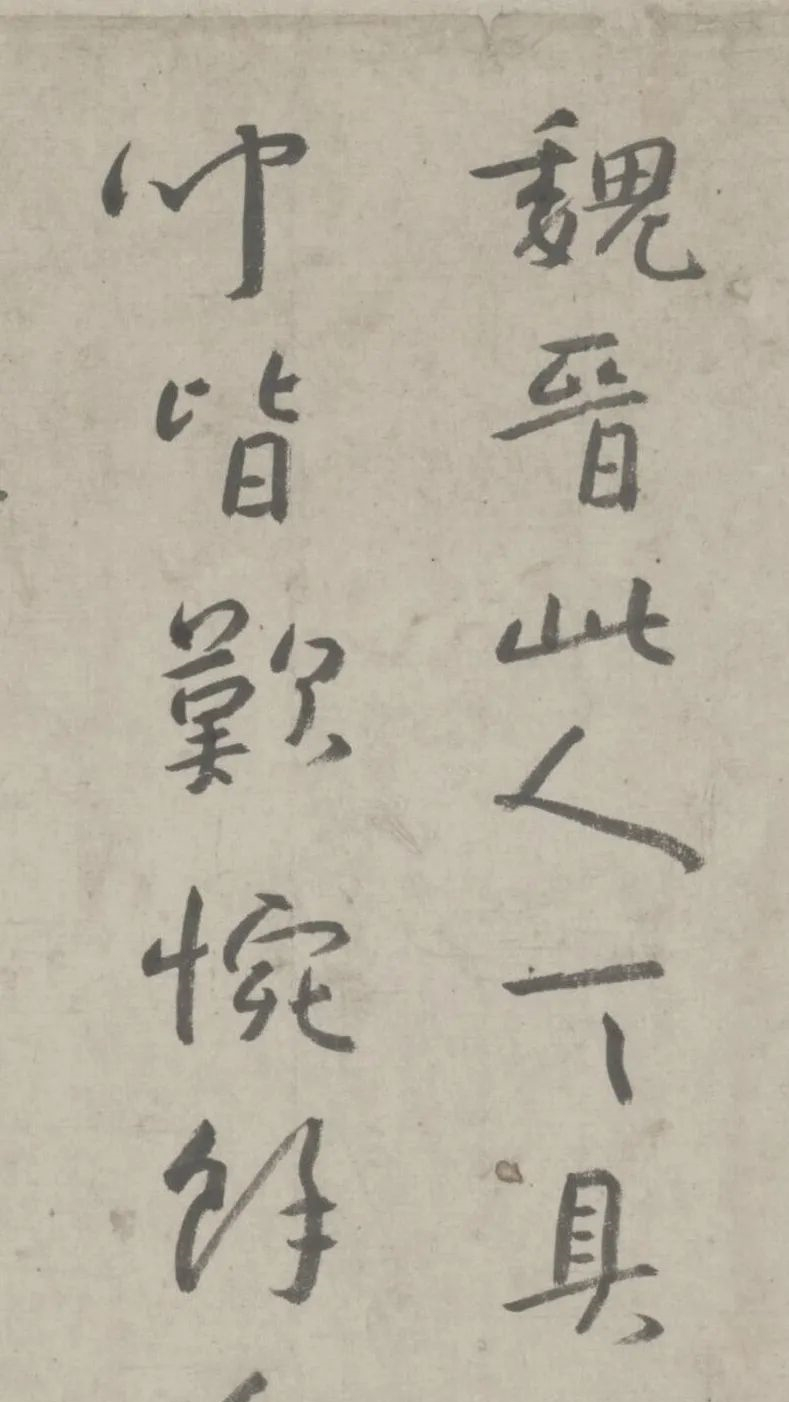 魏晉此人一一具
皆歎惋餘